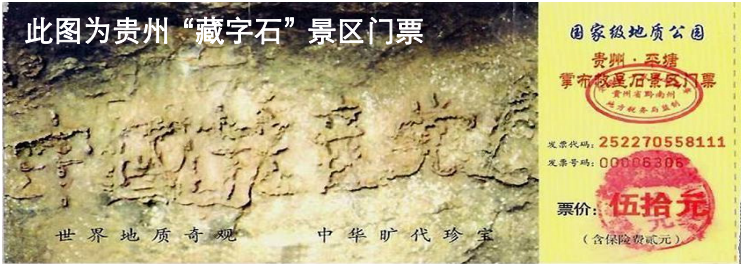 此图为贵州“藏字石”景区门票
中國共産党亡
世界地质奇观 中华旷代珍宝
国家级地质公园
贵州·平塘
掌布救星石景区门票
贵州省黔南州
地方税务局监制
发票代码：252270558111
发票号码：00006306
票价：伍拾元
（含保险费贰元）